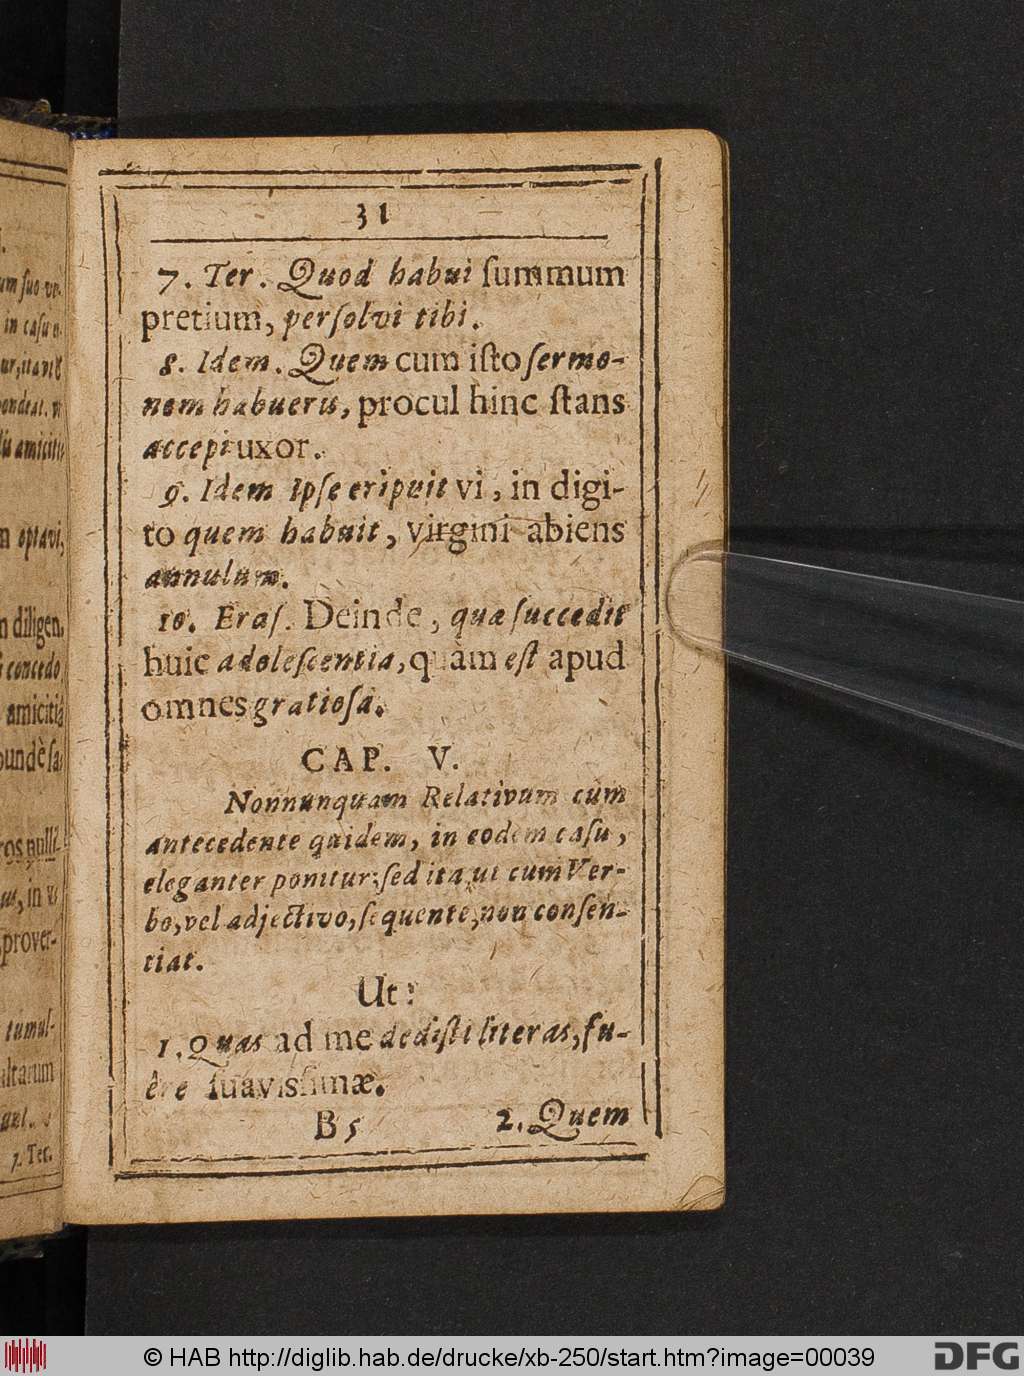 31
7. Ter. Quod habui ſummum
pretium, perſolvi tibi.
8. Idem. Quem cum iſto ſermo-
nem habueris, procul hinc ſtans
accepi uxor.
9. Idem Ipſe eripuit vi, in digi-
to quem habuit, virgini abiens
annulum.
10. Eraſ. Deinde, quæ ſuccedit
huic adoleſcentia, quàm eſt apud
omnes gratioſa.
CAP. V.
Nonnunquam Relativum cùm
antecedente quidem, in eodem caſu,
eleganter ponitur: ſed ita, ut cum Ver-
bo, vel adjectivo, ſequente, non conſen-
tiat.
Ut:
1. Quas ad me dediſti literas, fu-
êre ſuaviſſimæ.
B 5
2. Quem
um ſuo
in caſu
amiciti
optavi,
diligen,
concedo
amicitiâ
nulli-
in
prover-
tumul-
7. Ter.
© HAB http://diglib.hab.de/drucke/xb-250/start.htm?image=00039
DFG